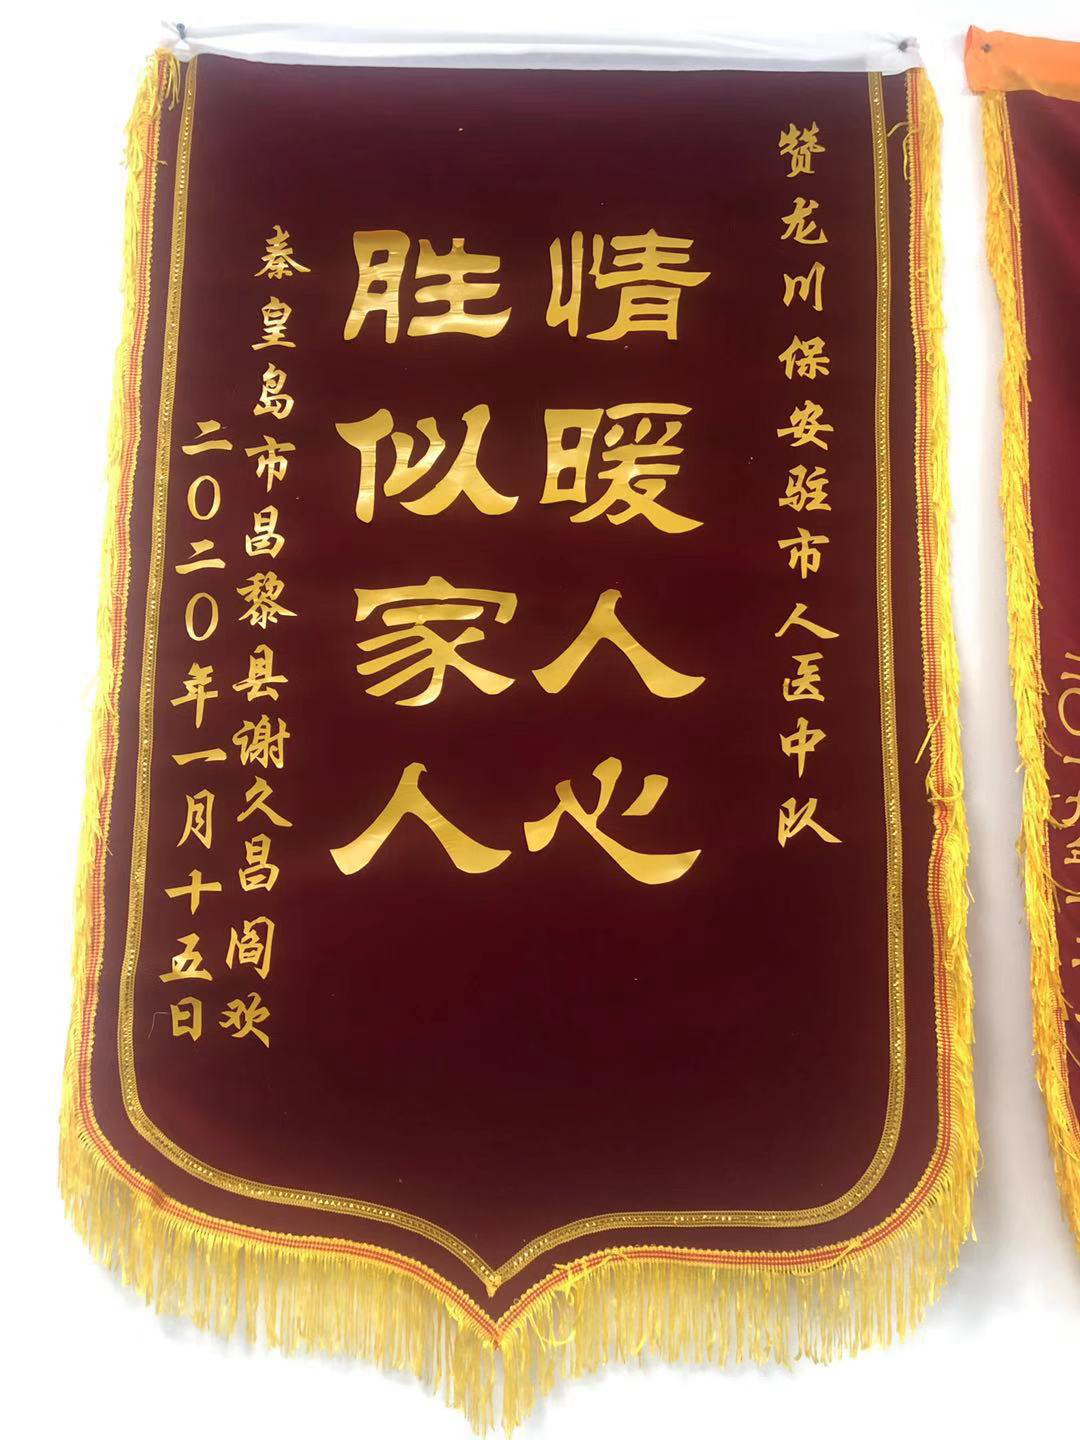 赞龙川保安驻市人医中队
情暖人心
胜似家人
秦皇岛市昌黎县谢久昌阎欢
二〇二〇年一月十五日